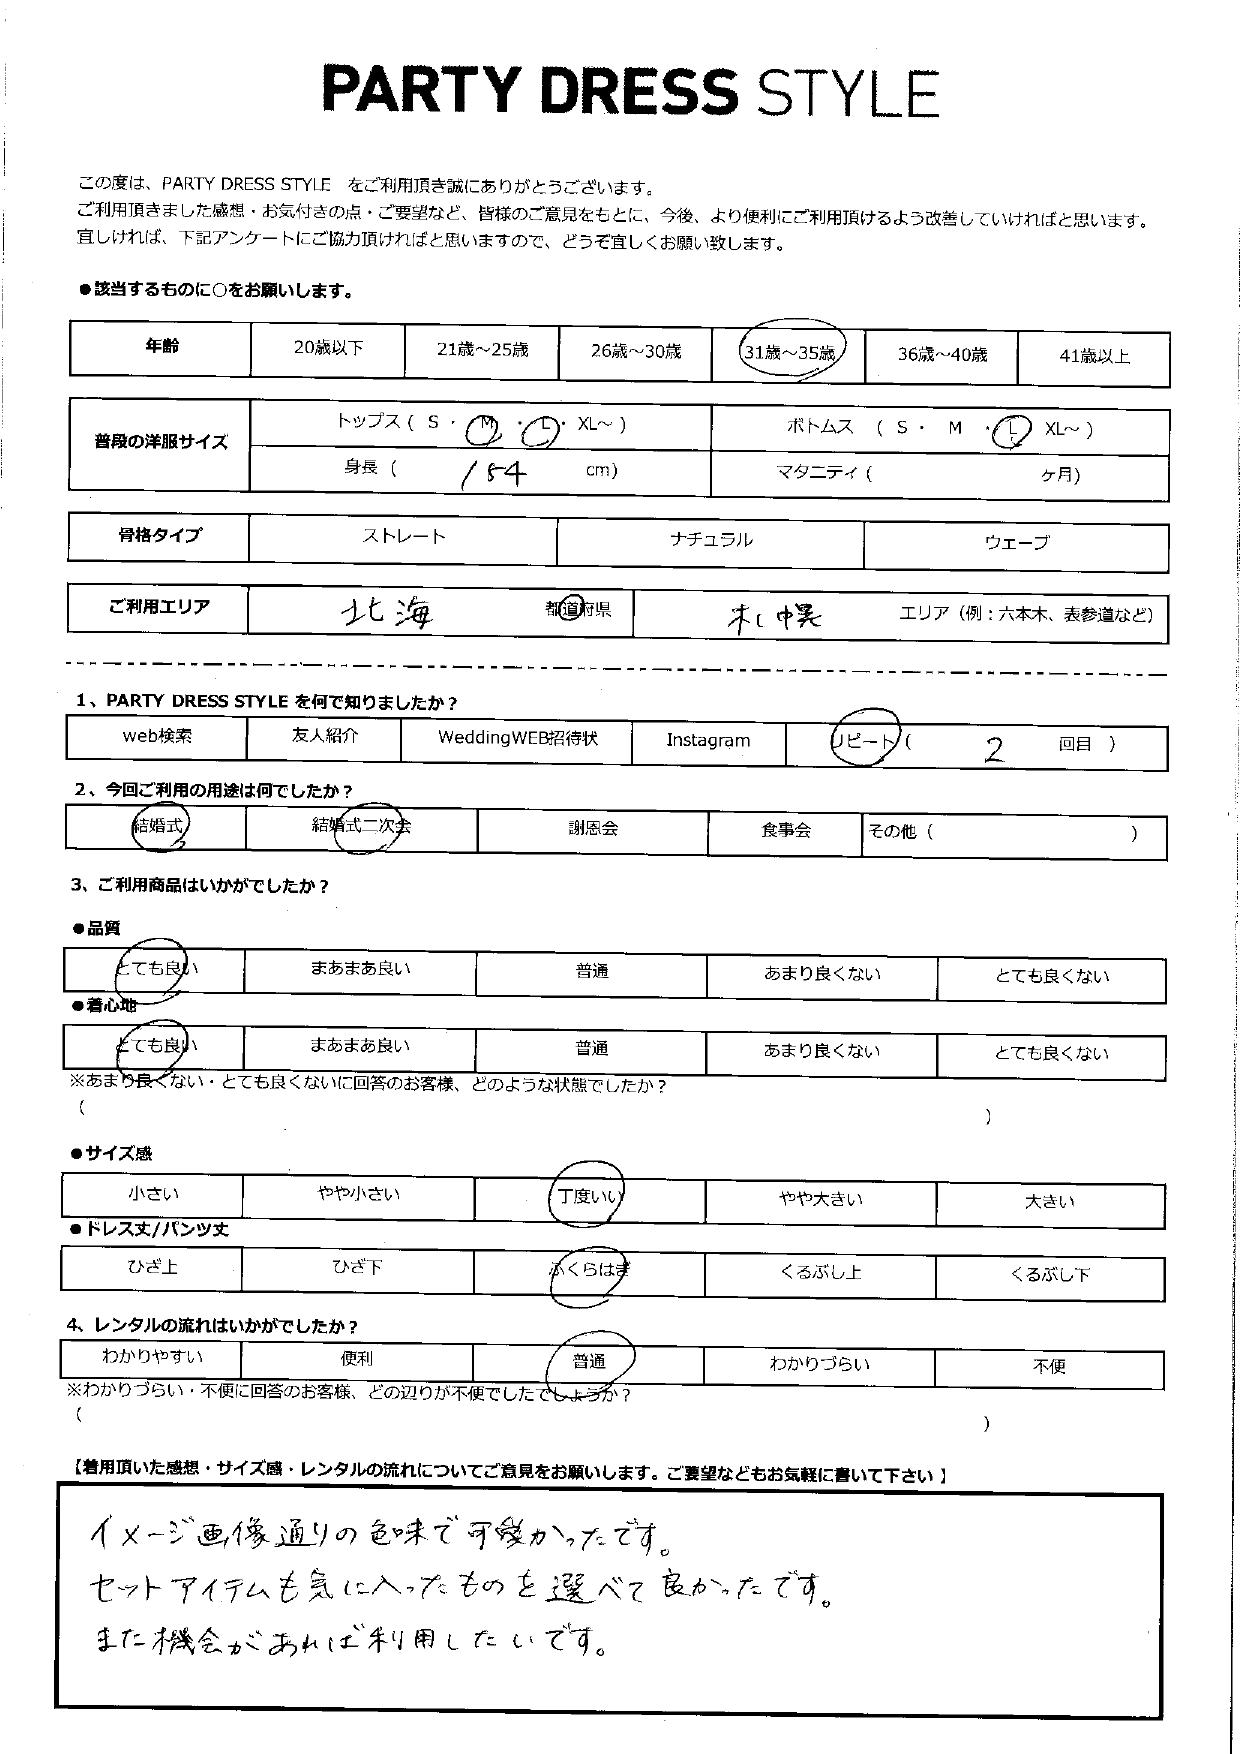 PARTY DRESS STYLE
この度は、PARTY DRESS STYLE をご利用頂き誠にありがとうございます。
ご利用頂きました感想・お気付きの点・ご要望など、皆様のご意見をもとに、今後、より便利にご利用頂けるよう改善していければと思います。
宜しければ、下記アンケートにご協力頂ければと思いますので、どうぞ宜しくお願い致します。
●該当するものに○をお願いします。
年齢 20歳以下 21歳～25歳 26歳～30歳 31歳～35歳 36歳～40歳 41歳以上
普段の洋服サイズ トップス ( S ・ M ・ L ・ XL～ ) ボトムス ( S ・ M ・ L XL～ )
身長 ( 154 cm) マタニティ ( ケ月)
骨格タイプ ストレート ナチュラル ウェーブ
ご利用エリア 北海 都道府県 札幌 エリア（例：六本木、表参道など）
1、PARTY DRESS STYLE を何で知りましたか？
web検索 友人紹介 WeddingWEB招待状 Instagram リピート ( 2 回目 )
2、今回ご利用の用途は何でしたか？
結婚式 結婚式二次会 謝恩会 食事会 その他 ( )
3、ご利用商品はいかがでしたか？
●品質
とても良い まあまあ良い 普通 あまり良くない とても良くない
●着心地
とても良い まあまあ良い 普通 あまり良くない とても良くない
※あまり良くない・とても良くないに回答のお客様、どのような状態でしたか？
( )
●サイズ感
小さい やや小さい 丁度いい やや大きい 大きい
●ドレス丈/パンツ丈
ひざ上 ひざ下 ふくらはぎ くるぶし上 くるぶし下
4、レンタルの流れはいかがでしたか？
わかりやすい 便利 普通 わかりづらい 不便
※わかりづらい・不便に回答のお客様、どの辺りが不便でしたでしょうか？
( )
【着用頂いた感想・サイズ感・レンタルの流れについてご意見をお願いします。ご要望などもお気軽に書いて下さい】
イメージ画像通りの色味で可愛かったです。
セットアイテムも気に入ったものを選べて良かったです。
また機会があれば利用したいです。